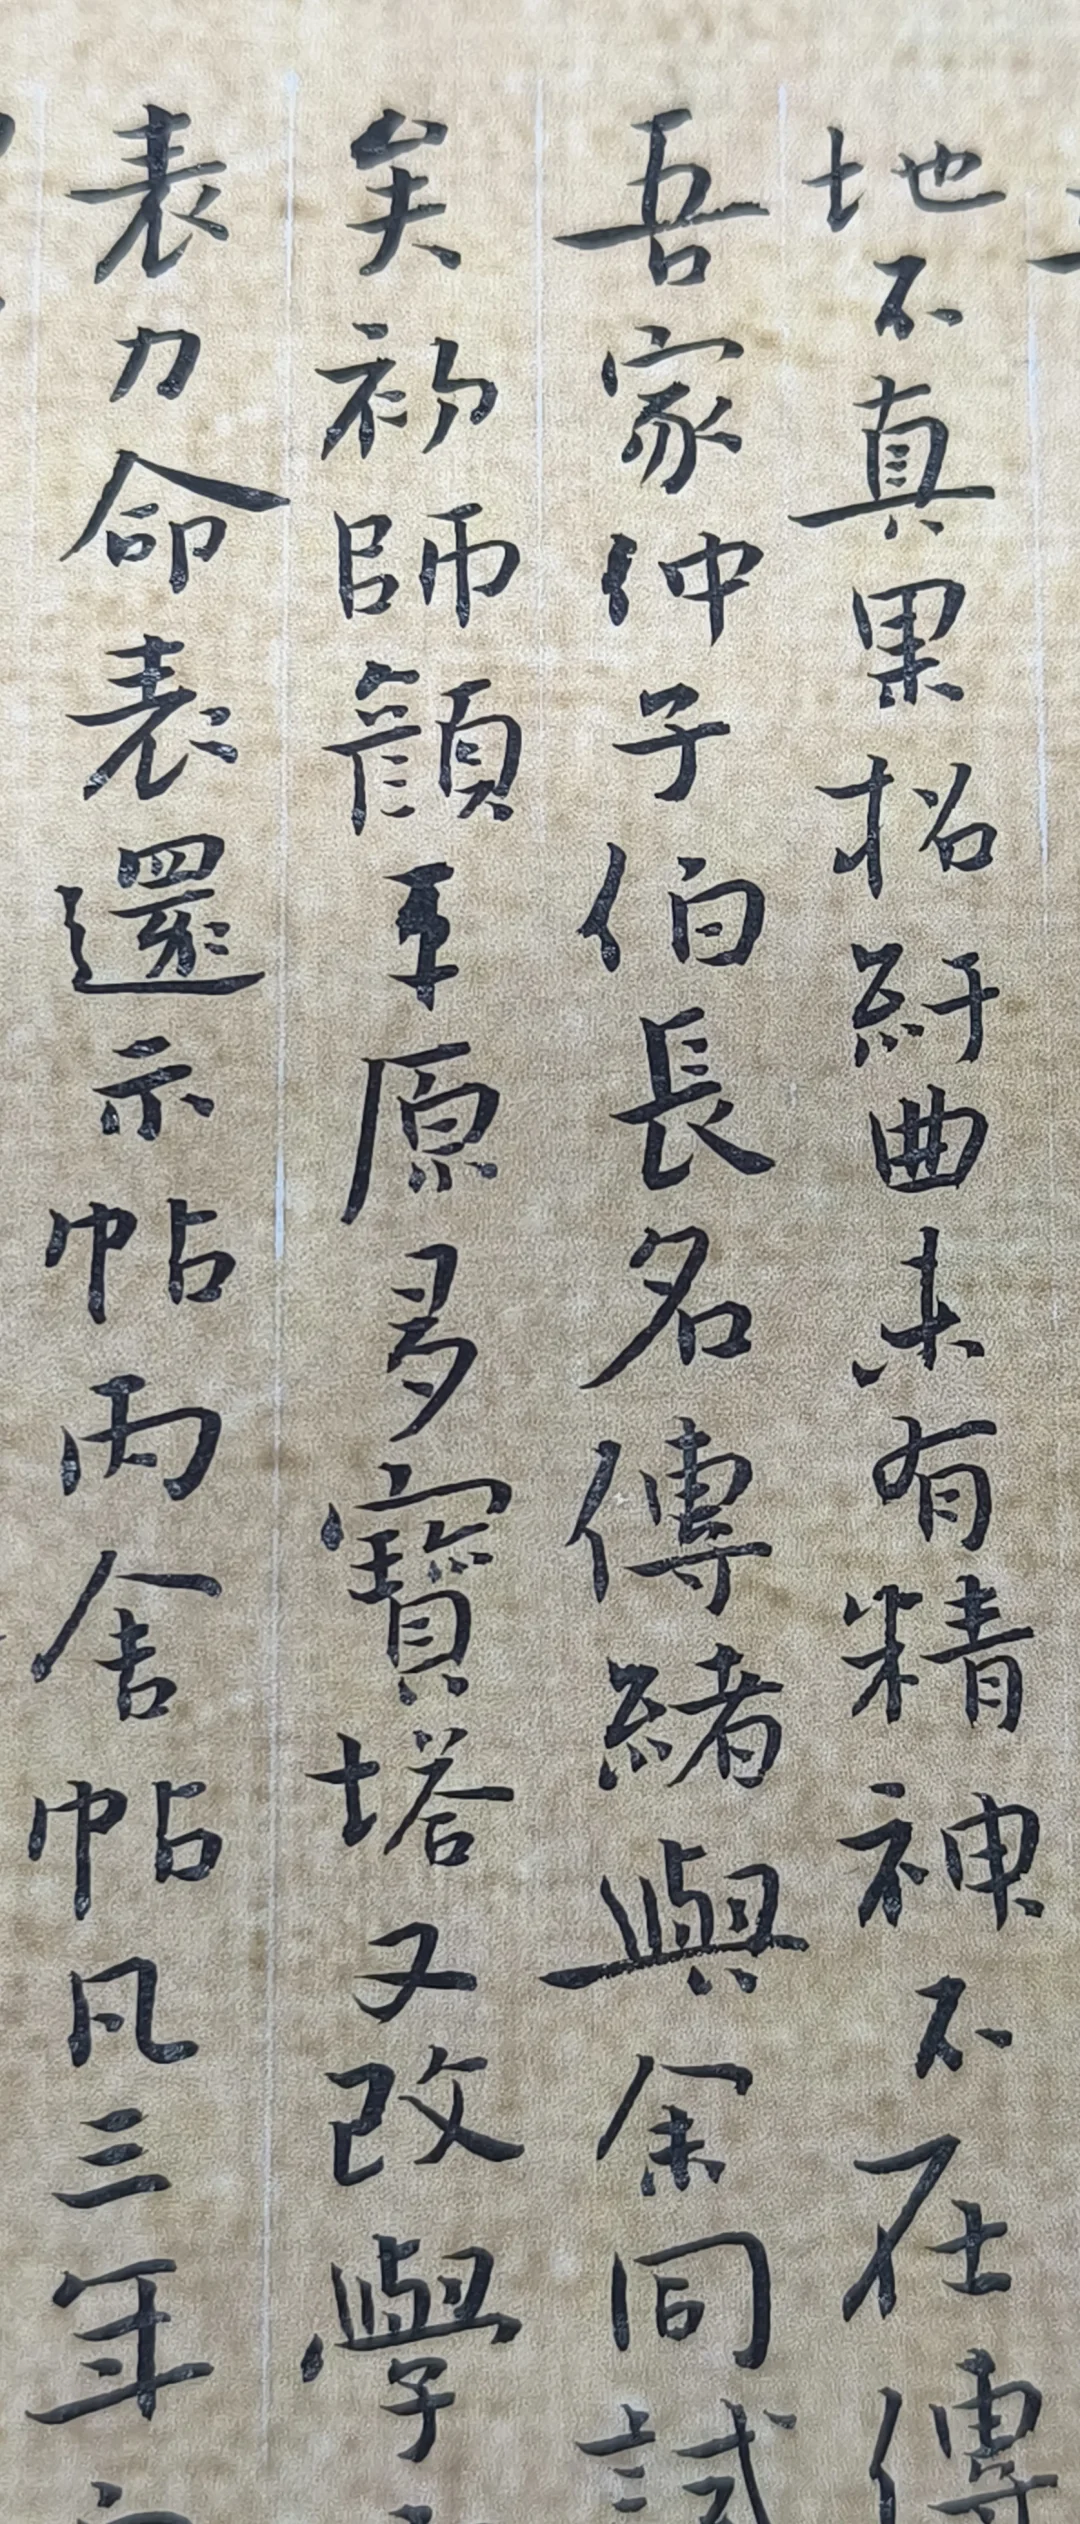 地不真果招紆曲未有精神不在傳
吾家仲子伯長名傳緒與余同試
矣初師顏平原多寶塔又改學
表力命表還示帖丙舍帖凡三年